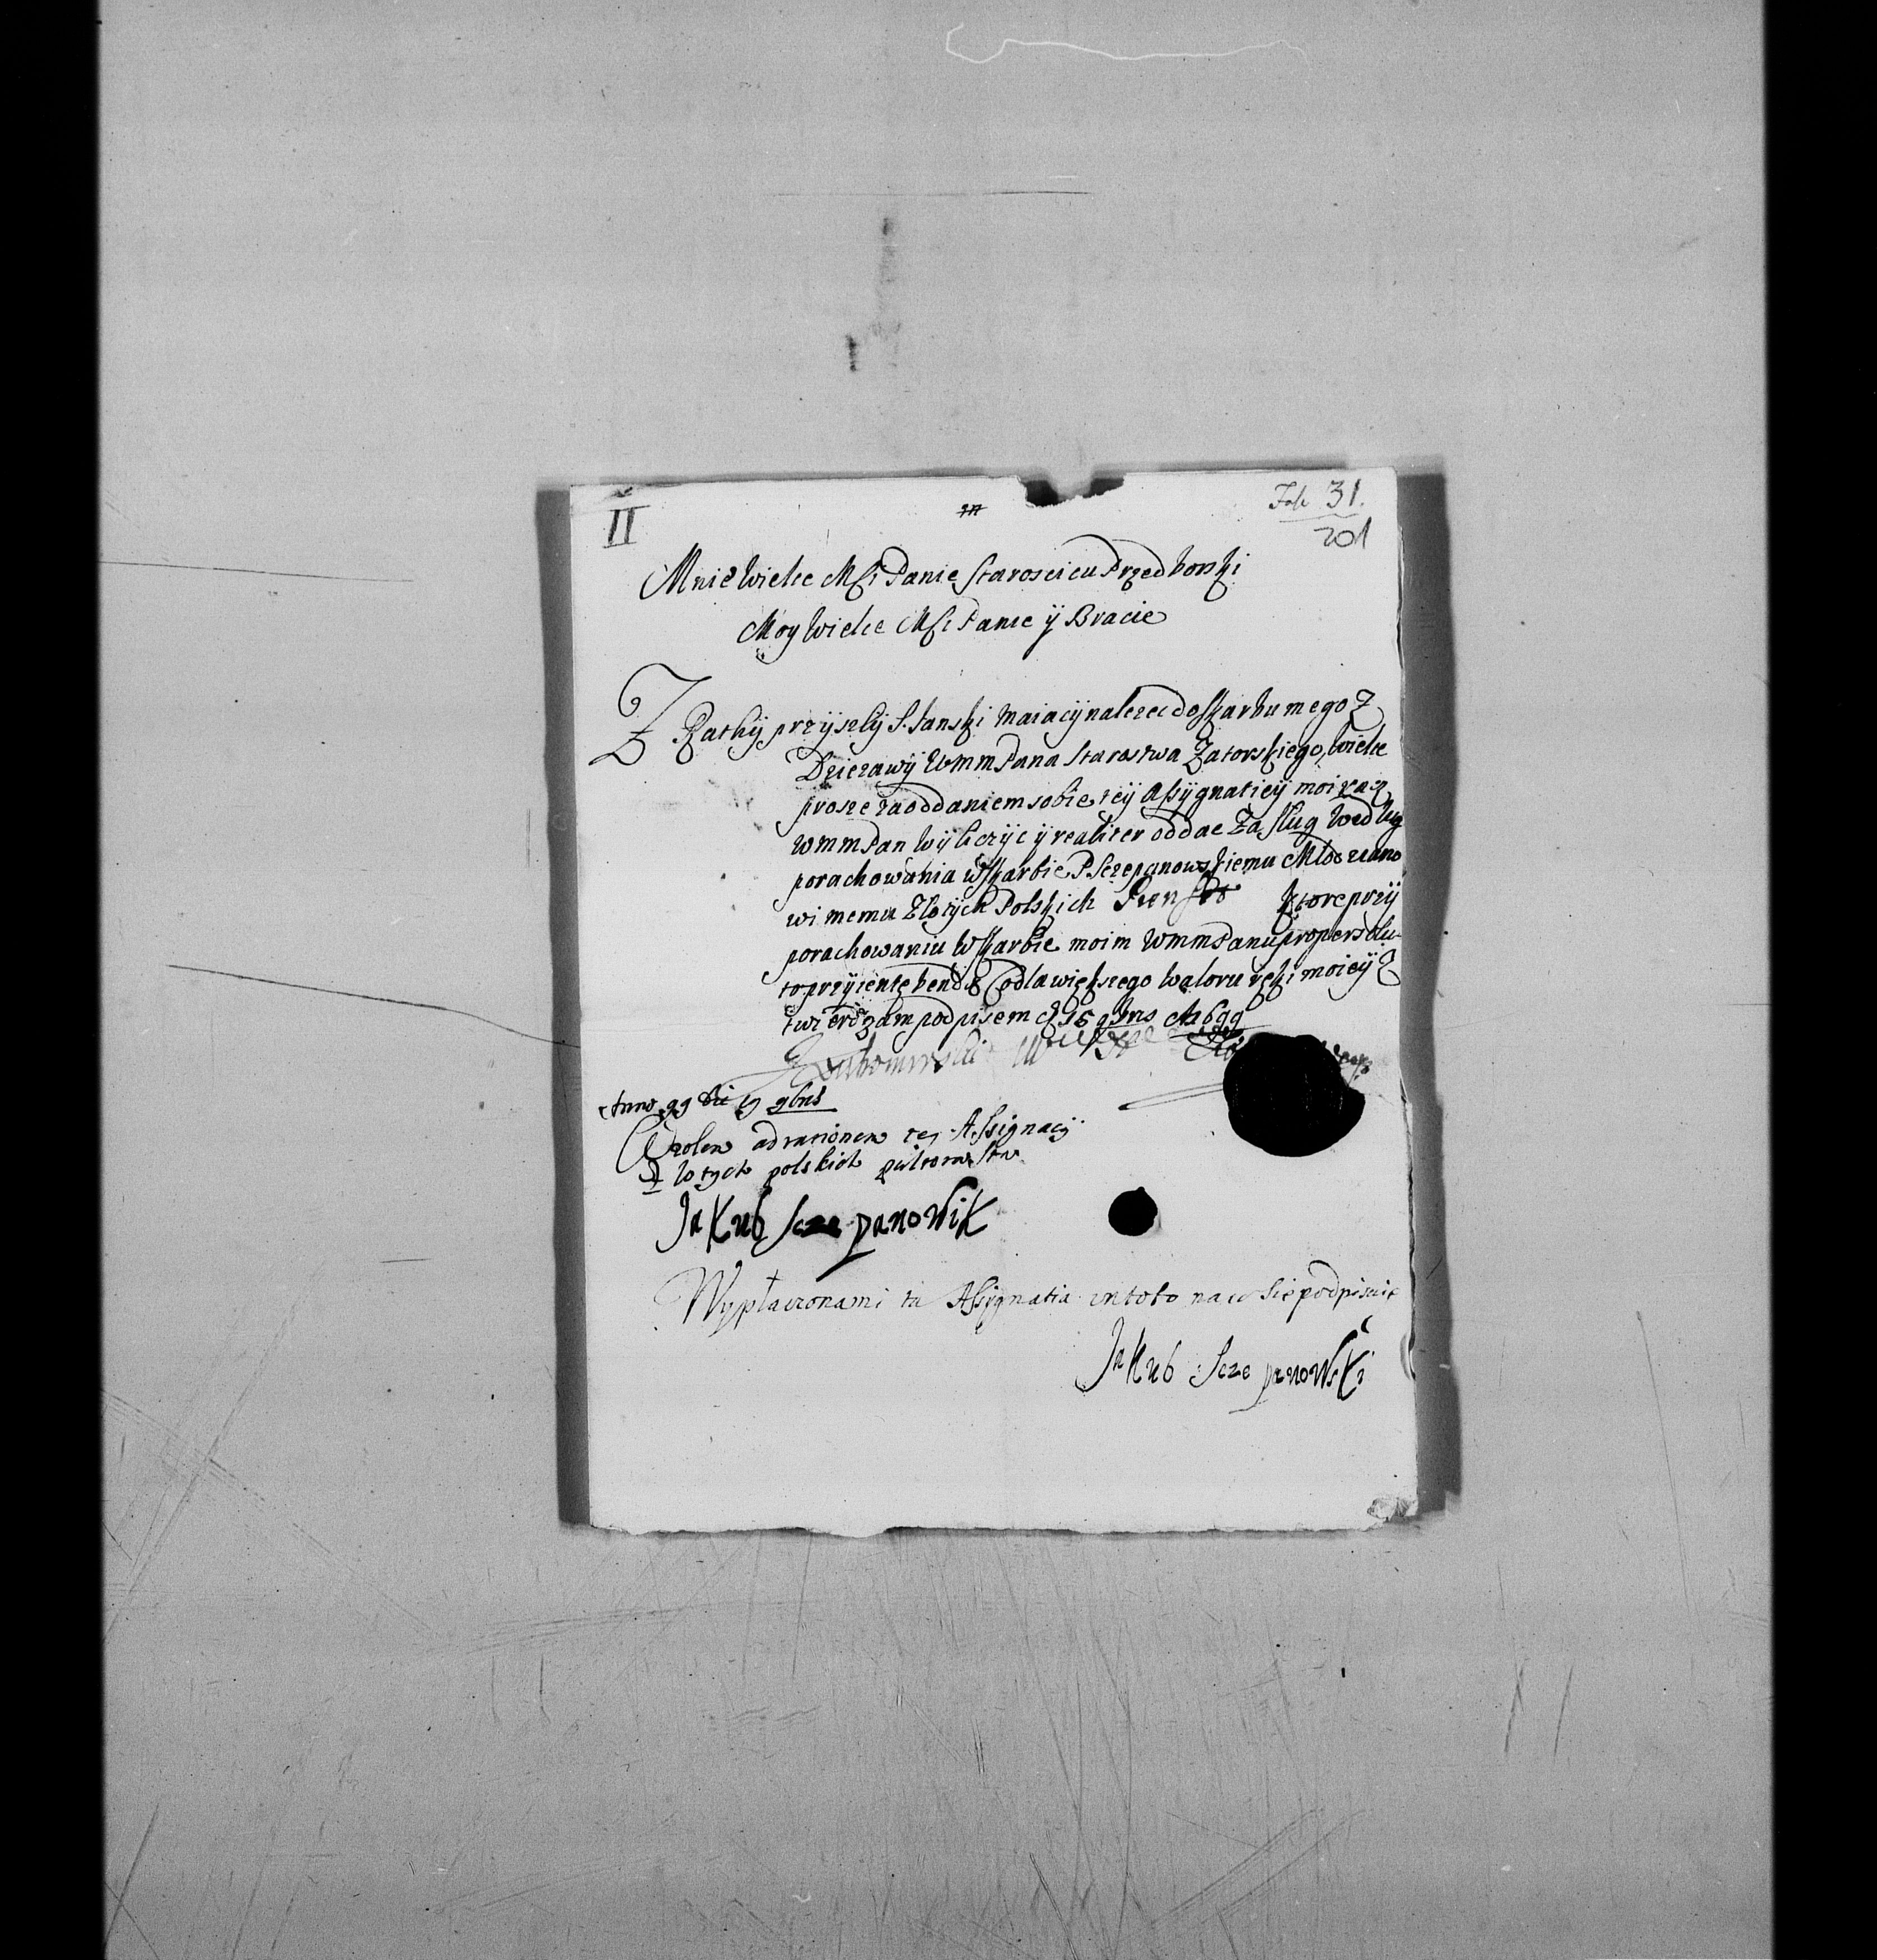 II
Fol. 31.
201
Mnie Wielce Msci Panie Staroscicu Przedborski
Moy Wielce Msci Panie ÿ Bracie
Z Rathÿ przÿszlÿ S. Janski maiacÿ nalezec do Skarbu mego Z
Dzierzawÿ WmmPana Starostwa Zatorskiego, Wielce
prosze za oddaniem sobie teÿ Assÿgnaticÿ moi racz
WmmPan Wÿliczÿc ÿ realiter oddac Zasług Według
porachowania w Skarbie P Sczepanowskiemu Młodziano
wi memu Złotÿch Polskich Piensset Ktore przÿ
porachowaniu W Skarbie moim WmmPanu pro persolu
to przÿiente bendą Co dla większego waloru ręki moieÿ Z
twierdzam podpisem d 15 9bris A 1699
Lubomirski
Anno 99 die 19 9bris
Wziolem ad rationem tej Assignacÿ
Złotych polskich pułtorasta
Jakub Sczepanowsk
Wypłaczona mi ta Assÿgnatia in toto na co sie podpisuie
Jakub Sczepanowski